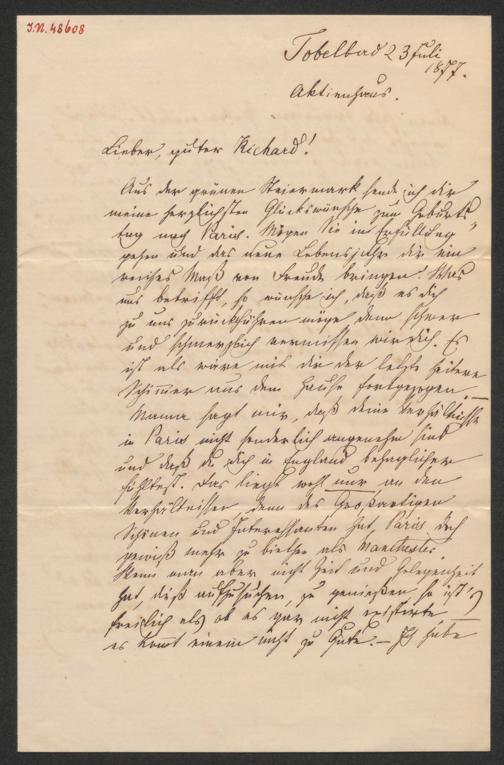 J.N. 48608
Tobelbad 23 Juli
1877.
Aktienhaus.
Lieber, guter Richard!
Aus der grünen Steiermark sende ich dir
meine herzlichsten Glückswünsche zum Geburts-
tag nach Paris. Mögen Sie in Erfüllung
gehen und das neue Lebensjahr dir ein
reiches Maß von Freude bringen. Was
uns betrifft, so wünsche ich, daß es dich
zu uns zurückführen möge denn schwer
und schmerzlich vermissen wir dich. Es
ist als wäre mit dir der letzte heitere
Schimmer aus dem Hause fortgezogen. –
Mama sagt mir, daß deine Verhältnisse
in Paris nicht sonderlich angenehm sind
und daß du dich in England behaglicher
fühltest. Das liegt wohl nur an den
Verhältnissen, denn des Großartigen
Schönen und Interessanten hat Paris doch
gewiß mehr zu bieten als Manchester.
Wenn man aber nicht Zeit und Gelegenheit
hat, dieß aufzusuchen, zu genießen, so ist's
freilich als ob es gar nicht existirte,
es kommt einem nicht zu Gute. – Ich habe